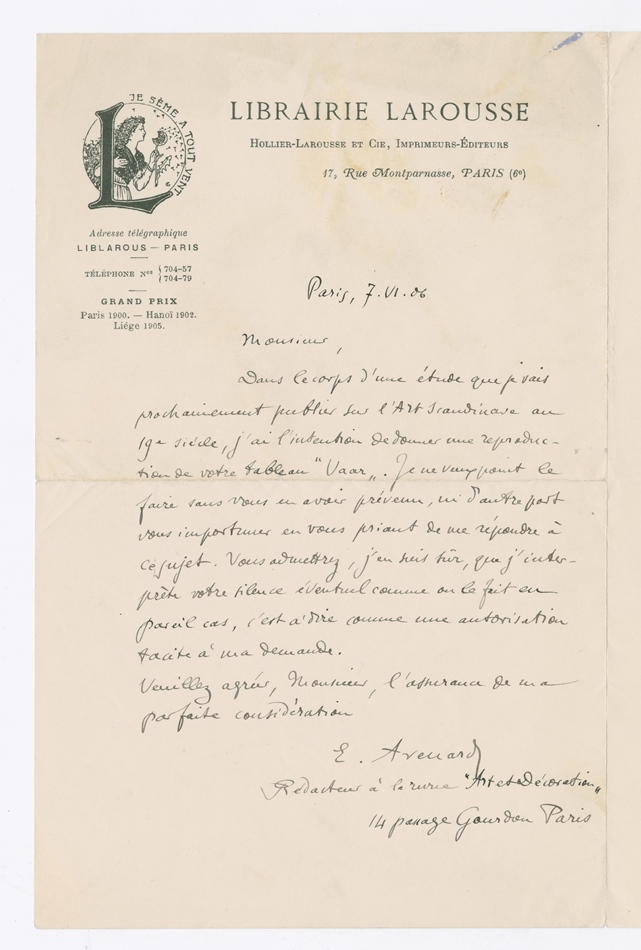 JE SÈME A TOUT VENT
L
LIBRAIRIE LAROUSSE
HOLLIER-LAROUSSE ET CIE, IMPRIMEURS-ÉDITEURS
17, Rue Montparnasse, PARIS (6e)
Adresse télégraphique
LIBLAROUS — PARIS
TÉLÉPHONE Nos { 704-57
704-79
GRAND PRIX
Paris 1900. — Hanoï 1902.
Liége 1905.
Paris, 7.VI.06
Monsieur,
Dans le corps d'une étude que je vais
prochainement publier sur l'Art Scandinave au
19e siècle, j'ai l'intention de donner une reproduc-
tion de votre tableau "Vaar„. Je ne veux point le
faire sans vous en avoir prévenu, ni d'autre part
vous importuner en vous priant de me répondre à
ce sujet. Vous admettrez, j'en suis sûr, que j'inter-
prète votre silence éventuel comme on le fait en
pareil cas, c'est à dire comme une autorisation
tacite à ma demande.
Veuillez agréer, Monsieur, l'assurance de ma
parfaite considération
E. Avenard
Rédacteur à la revue "Art et Décoration„
14 passage Gourdon Paris